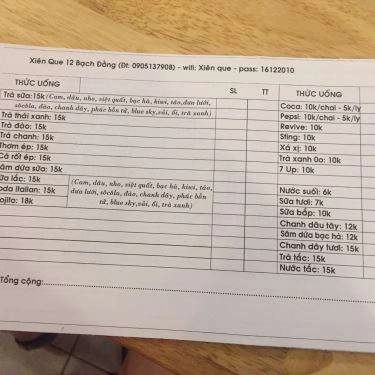 Xiên Que 12 Bạch Đằng (Đt: 0905137908) - wifi: Xiên que - pass: 16122010
THỨC UỐNG SL TT THỨC UỐNG
Trà sữa: 15k (Cam, dâu, nho, việt quất, bạc hà, kiwi, táo, dưa lưới,
sôcôla, đào, chanh dây, phúc bồn tử, blue sky, sôi, ổi, trà xanh)
Trà thái xanh: 15k
Trà đào: 15k
Trà chanh: 15k
Thơm ép: 15k
Cà rốt ép: 15k
Sâm dứa sữa: 15k
Sữa lắc: 15k
Soda Italian: 15k
Mojito: 18k
(Cam, dâu, nho, việt quất, bạc hà, kiwi, táo,
dưa lưới, sôcôla, đào, chanh dây, phúc bồn
tử, blue sky, sôi, ổi, trà xanh)
Coca: 10k/chai - 5k/ly
Pepsi: 10k/chai - 5k/ly
Revive: 10k
Sting: 10k
Xá xị: 10k
Trà xanh 0o: 10k
7 Up: 10k
Nước suối: 6k
Sữa tươi: 7k
Sữa bắp: 10k
Chanh dâu tây: 12k
Sâm dứa bạc hà: 12k
Chanh dây tươi: 15k
Trà lắc: 15k
Nước tắc: 15k
Tổng cộng: